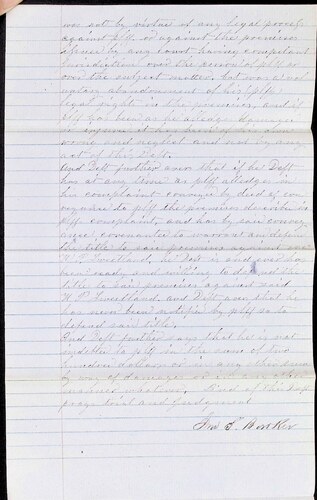 was not by virtue of any legal process
against plff. or against the premises
issued by any Court having competent
Jurisdiction over the person of plff or
over the subject matter, but was a vol
untary abandonment of his (plffs)
legal right in the premises, and if
plff has been as he alleges damaged
or injured it has been by his own
wrong and neglect and not by any
act of this Deft.
And Deft further avers that if he Deft
has at any time as plff alledges in
his complaint conveyed by deed of con
veyance to plff the premises described in
plffs complaint, and has by said convey
ance, covenanted to warrant and defend
the title to said premises against said
W. P. Tweetland, he Deft is and ever has
been ready and willing to defend the
title to said premises against said
W. P. Tweetland, and Deft avers that he
has never been notified by plff so to
defend said title.
And Deft further says that he is not
indebted to plff in the sum of two
hundred dollars or in any other sum
by way of damages or in any other
manner whatever. And of this Deft
prays trial and judgment